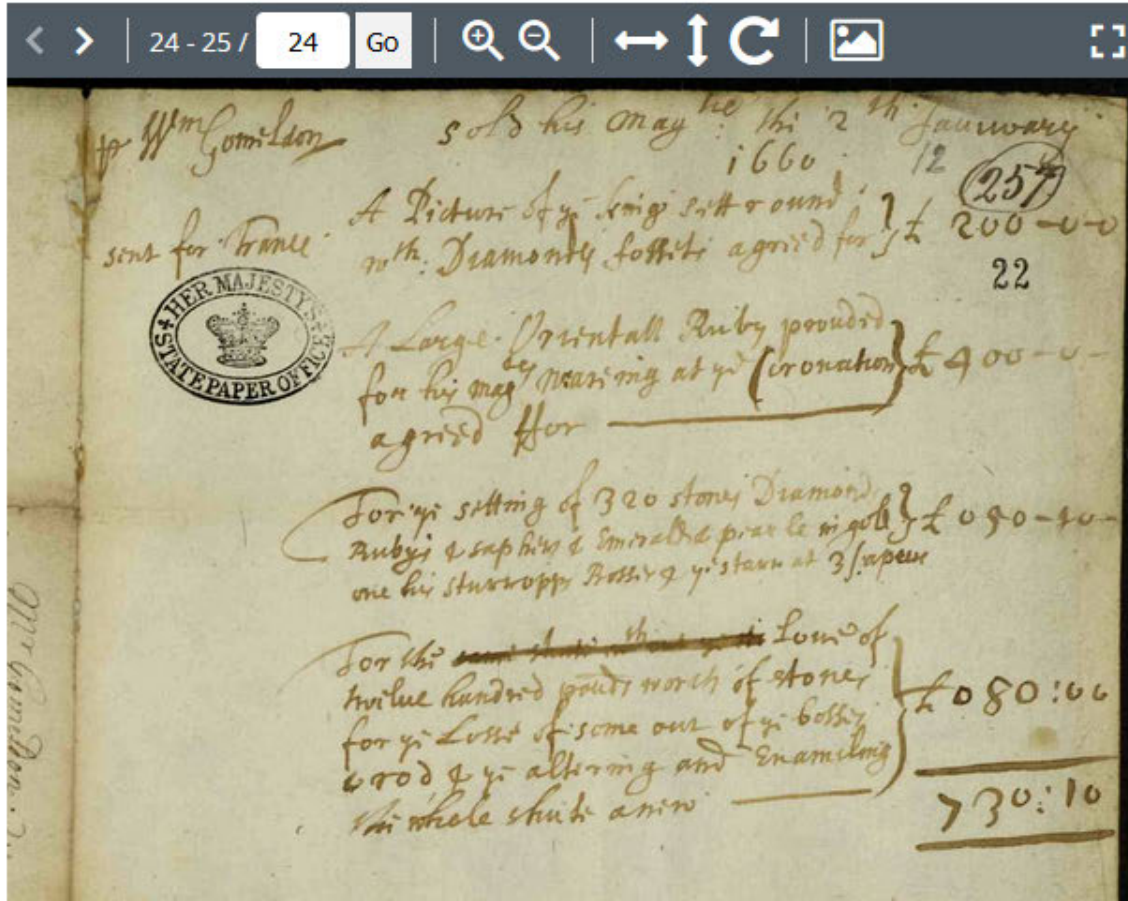 24 - 25 / 24 Go
p Wm Gomeldon sold his Magtie: the 2th Januuary
1660 12
257
A Picture of ye kinge sett round
sent for France wth: Diamondes fossets agreed for £ 200-0-0
22
HER MAJESTY'S
STATE PAPER OFFICE
A Large Orientall Ruby prouded
for his Magties wearing at ye Coronation £ 400-0-
agreed ffor
For ye setting of 320 stones Diamond
Rubys & saphirs & Emeralds & pearle in gold £ 050-10-
one his sturropps Bosses & ye starr at 3s apeece
For the Lone of
twelve hundred pouds worth of stones
for ye Losse of some out of ye bosses £ 080:00
& rod & ye altering and Enamiling
the whole shute anew
730:10